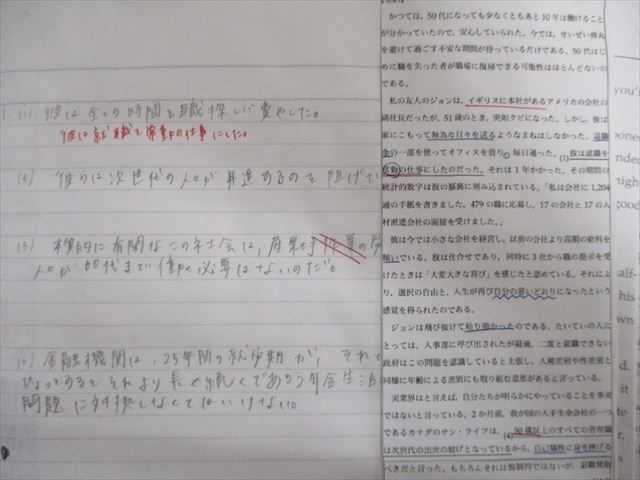 1. (1) 彼は全ての時間を職探しに費やした。
彼は就職を常勤の仕事にした。
(4) 彼らは次世代の人々が昇進するのを阻げてい
(5) 的に有閑なこの社会は、産業と手作業の労
人々が60代まで働く必要はないのだ。
金融機関は、25年間の就労期が、それと
ひょっとするとそれより長く続くであろう年金生活
問題に対処しなくてはいけない。
かつては、50代になっても少なくともあと10年は働けること
が分かっていたので、安心していられた。今では、せいぜい弾丸
を避けて過ごす不安な期間が待っているだけである。50代はじ
めに職を失った者が職場に復帰できる可能性はほとんどないの
である。
私の友人のジョンは、イギリスに本社があるアメリカの会社の
副社長だったが、51歳のとき、突如クビになった。しかし、彼は
家にこもって無為な日々を送るようなまねはしなかった。退職
金の一部を使ってオフィスを借り、毎日通った。(1)彼は就職を
常勤の仕事にしたのだった。それは1年かかった。その期間の
統計的数字は彼の脳裏に刻み込まれている。「私は会社に1,204
通の手紙を書きました。479の職に応募し、17の会社と17の人
材派遣会社の面接を受けました。」
彼は今では小さな会社を経営し、以前の会社より高額の給料を
稼いでいる。彼は仕合せであり、同時に3社から職の提示を受
けたときは「大変大きな喜び」を感じたと認めている。それによ
り、選択の自由と、人生が再び自分の思いどおりになったという
感覚を得られたのである。
ジョンは飛び抜けて粘り強かったのである。たいていの人に
とっては、人事部に呼び出されたが最後、二度と就職できない
政府はこの問題を認識していると主張し、人種差別や性差別と
同様に年齢による差別にも取り組む意思があると言っている。
実業界はと言えば、自分たちが明らかにやっていることを事実
ではないと言っている。2か月前、我が国の大手生命会社の一つ
であるカナダのサン・ライフは、(4)50歳以上のすべての管理職
は次世代の出世の妨げとなっているから、自己犠牲に身を捧げる
べきだと言った。もちろんそれは強制的ではないが、退職奨励
you'
good
alf-
his
wn
d.
it
te
r,
s